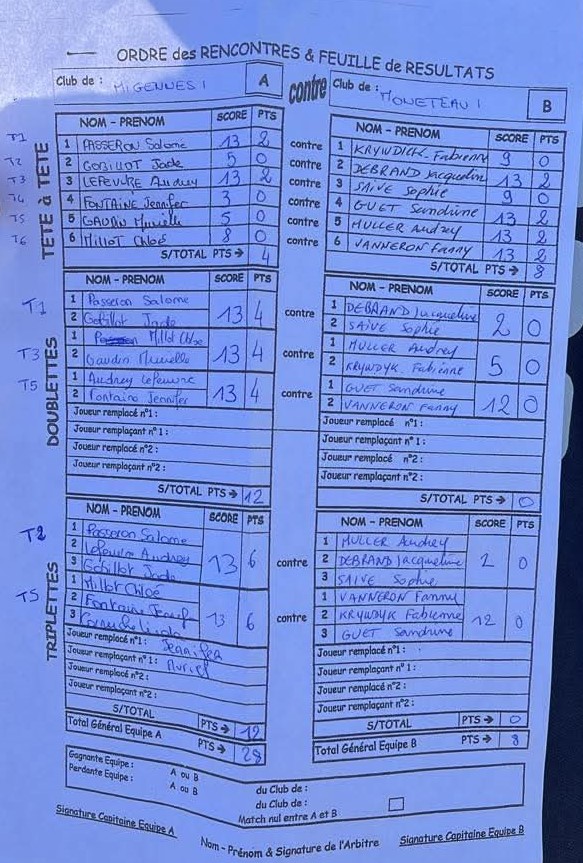 ORDRE des RENCONTRES & FEUILLE de RESULTATS
Club de : MIGENNES 1 A contre Club de : MONETEAU 1 B
TETE à TETE
NOM - PRENOM SCORE PTS NOM - PRENOM SCORE PTS
T1 1 PASSERON Salome 13 2 contre 1 KRYWDICK Fabienne 9 0
T2 2 GOBILLOT Jade 5 0 contre 2 DEBRAND Jacqueline 13 2
T3 3 LEFEUVRE Audrey 13 2 contre 3 SAIVE Sophie 9 0
T4 4 FONTAINE Jennifer 3 0 contre 4 GUET Sandrine 13 2
T5 5 GAUDIN Murielle 5 0 contre 5 MULLER Audrey 13 2
T6 6 Millot Chloé 8 0 contre 6 VANNERON Fanny 13 2
S/TOTAL PTS → 4 S/TOTAL PTS → 8
DOUBLETTES
NOM - PRENOM SCORE PTS NOM - PRENOM SCORE PTS
T1 1 Passeron Salome 13 4 contre 1 DEBRAND Jacqueline 2 0
2 Gobillot Jade 2 SAIVE Sophie
T3 1 Millot Chloe 13 4 contre 1 MULLER Audrey 5 0
2 Gaudin Murielle 2 KRYWDYK Fabienne
T5 1 Audrey Lefeuvre 13 4 contre 1 GUET Sandrine 12 0
2 Fontaine Jennifer 2 VANNERON Fanny
Joueur remplacé n°1 : Joueur remplacé n°1 :
Joueur remplaçant n°1 : Joueur remplaçant n°1 :
Joueur remplacé n°2 : Joueur remplacé n°2 :
Joueur remplaçant n°2 : Joueur remplaçant n°2 :
S/TOTAL PTS → 12 S/TOTAL PTS → 0
TRIPLETTES
NOM - PRENOM SCORE PTS NOM - PRENOM SCORE PTS
T2 1 Passeron Salome 1 MULLER Audrey
2 Lefeuvre Audrey 13 6 contre 2 DEBRAND Jacqueline 0
3 Gobillot Jade 3 SAIVE Sophie
T5 1 Millot Chloé 1 VANNERON Fanny
2 Fontaine 13 6 contre 2 KRYWDYK Fabienne 12 0
3 3 GUET Sandrine
Joueur remplacé n°1 : Jennifer Joueur remplacé n°1 :
Joueur remplaçant n°1 : Muriel Joueur remplaçant n°1 :
Joueur remplacé n°2 : Joueur remplacé n°2 :
Joueur remplaçant n°2 : Joueur remplaçant n°2 :
S/TOTAL PTS → 12 S/TOTAL PTS → 0
Total Général Equipe A PTS → 28 Total Général Equipe B PTS → 8
Gagnante Equipe : A ou B du Club de :
Perdante Equipe : A ou B du Club de :
Match nul entre A et B
Signature Capitaine Equipe A Nom - Prénom & Signature de l'Arbitre Signature Capitaine Equipe B